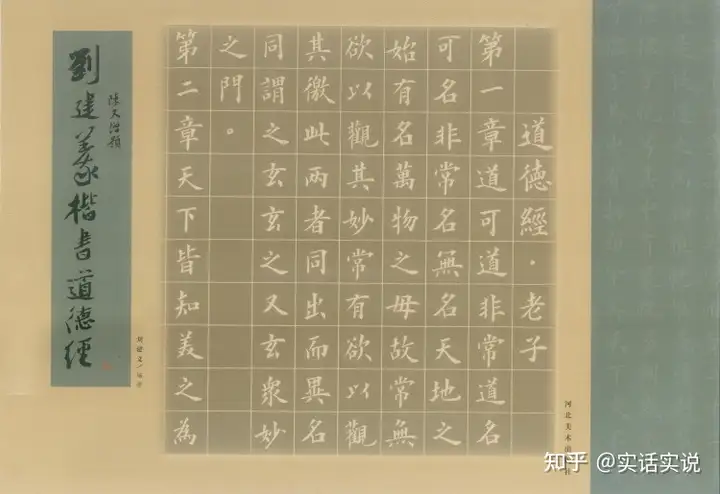 道德經·老子
第一章道可道非常道名
可名非常名無名天地之
始有名萬物之母故常無
欲以觀其妙常有欲以觀
其徼此兩者同出而異名
同謂之玄玄之又玄衆妙
之門。
第二章天下皆知美之為
劉建義楷書道德經
刘建义
河北美术出版社
知乎 @实话实说